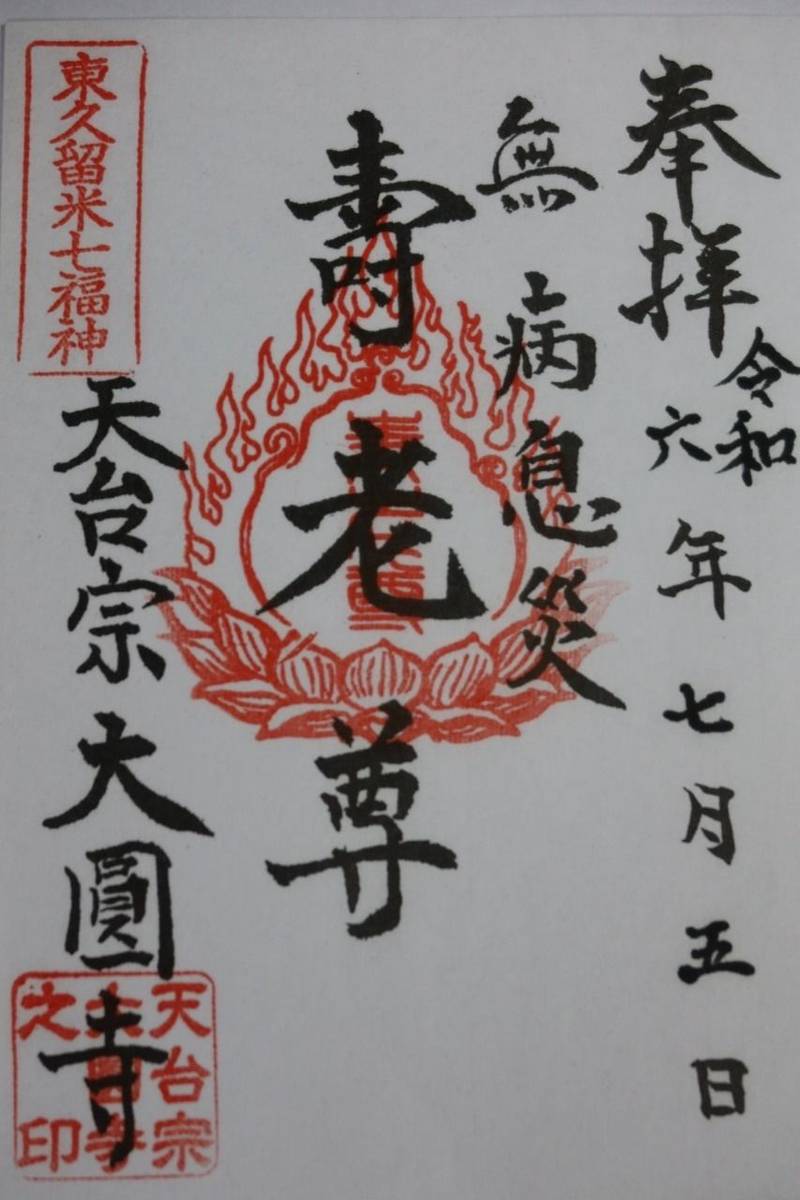 奉拝
令和
六年七月五日
無病息災
壽老尊
東久留米七福神
天台宗大圓寺
天台宗
之印